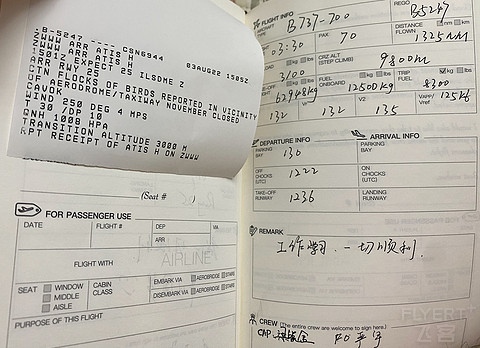 .B-5247 ---- CSN6944 03AUG22 1505Z
ZWWW ARR ATIS H
ZWWW ARR ATIS H
1501Z EXPECT 25 ILSDME Z
ARR RWY 25
CTN FLOCKS OF BIRDS REPORTED IN VICINITY
OF AERODROME/TAXIWAY NOVEMBER CLOSED
CAVOK
WIND 250 DEG 4 MPS
T 30 /DP 10
QNH 1008 HPA
TRANSITION ALTITUDE 3000 M
RPT RECEIPT OF ATIS H ON ZWWW
(Seat # )
FOR PASSENGER USE
DATE FLIGHT # DEP VIA
ARR
FLIGHT WITH
AIRLINE
SEAT WINDOW MIDDLE AISLE
CABIN CLASS
EMBARK VIA AEROBRIDGE STAIRS
DISEMBARK VIA AEROBRIDGE STAIRS
PURPOSE OF THIS FLIGHT
FLIGHT INFO
B737-700
REG B5247
03:30
PAX 70
DISTANCE FLOWN nm km
1325NM
3100
CRZ ALT (STEP CLIMB)
9800m
kg lbs
62968kg
FUEL ONBOARD kg lbs
12500kg
TRIP FUEL kg lbs
8300
132
132
V2 135
VAPP/Vref 125kt
DEPARTURE INFO
ARRIVAL INFO
PARKING BAY 130
PARKING BAY
OFF CHOCKS (UTC) 1222
ON CHOCKS (UTC)
TAKE-OFF RUNWAY 1236
LANDING RUNWAY
REMARK
工作学习,一切顺利.
CREW (The entire crew are welcome to sign here.)
CAP.
FO
FLYERT